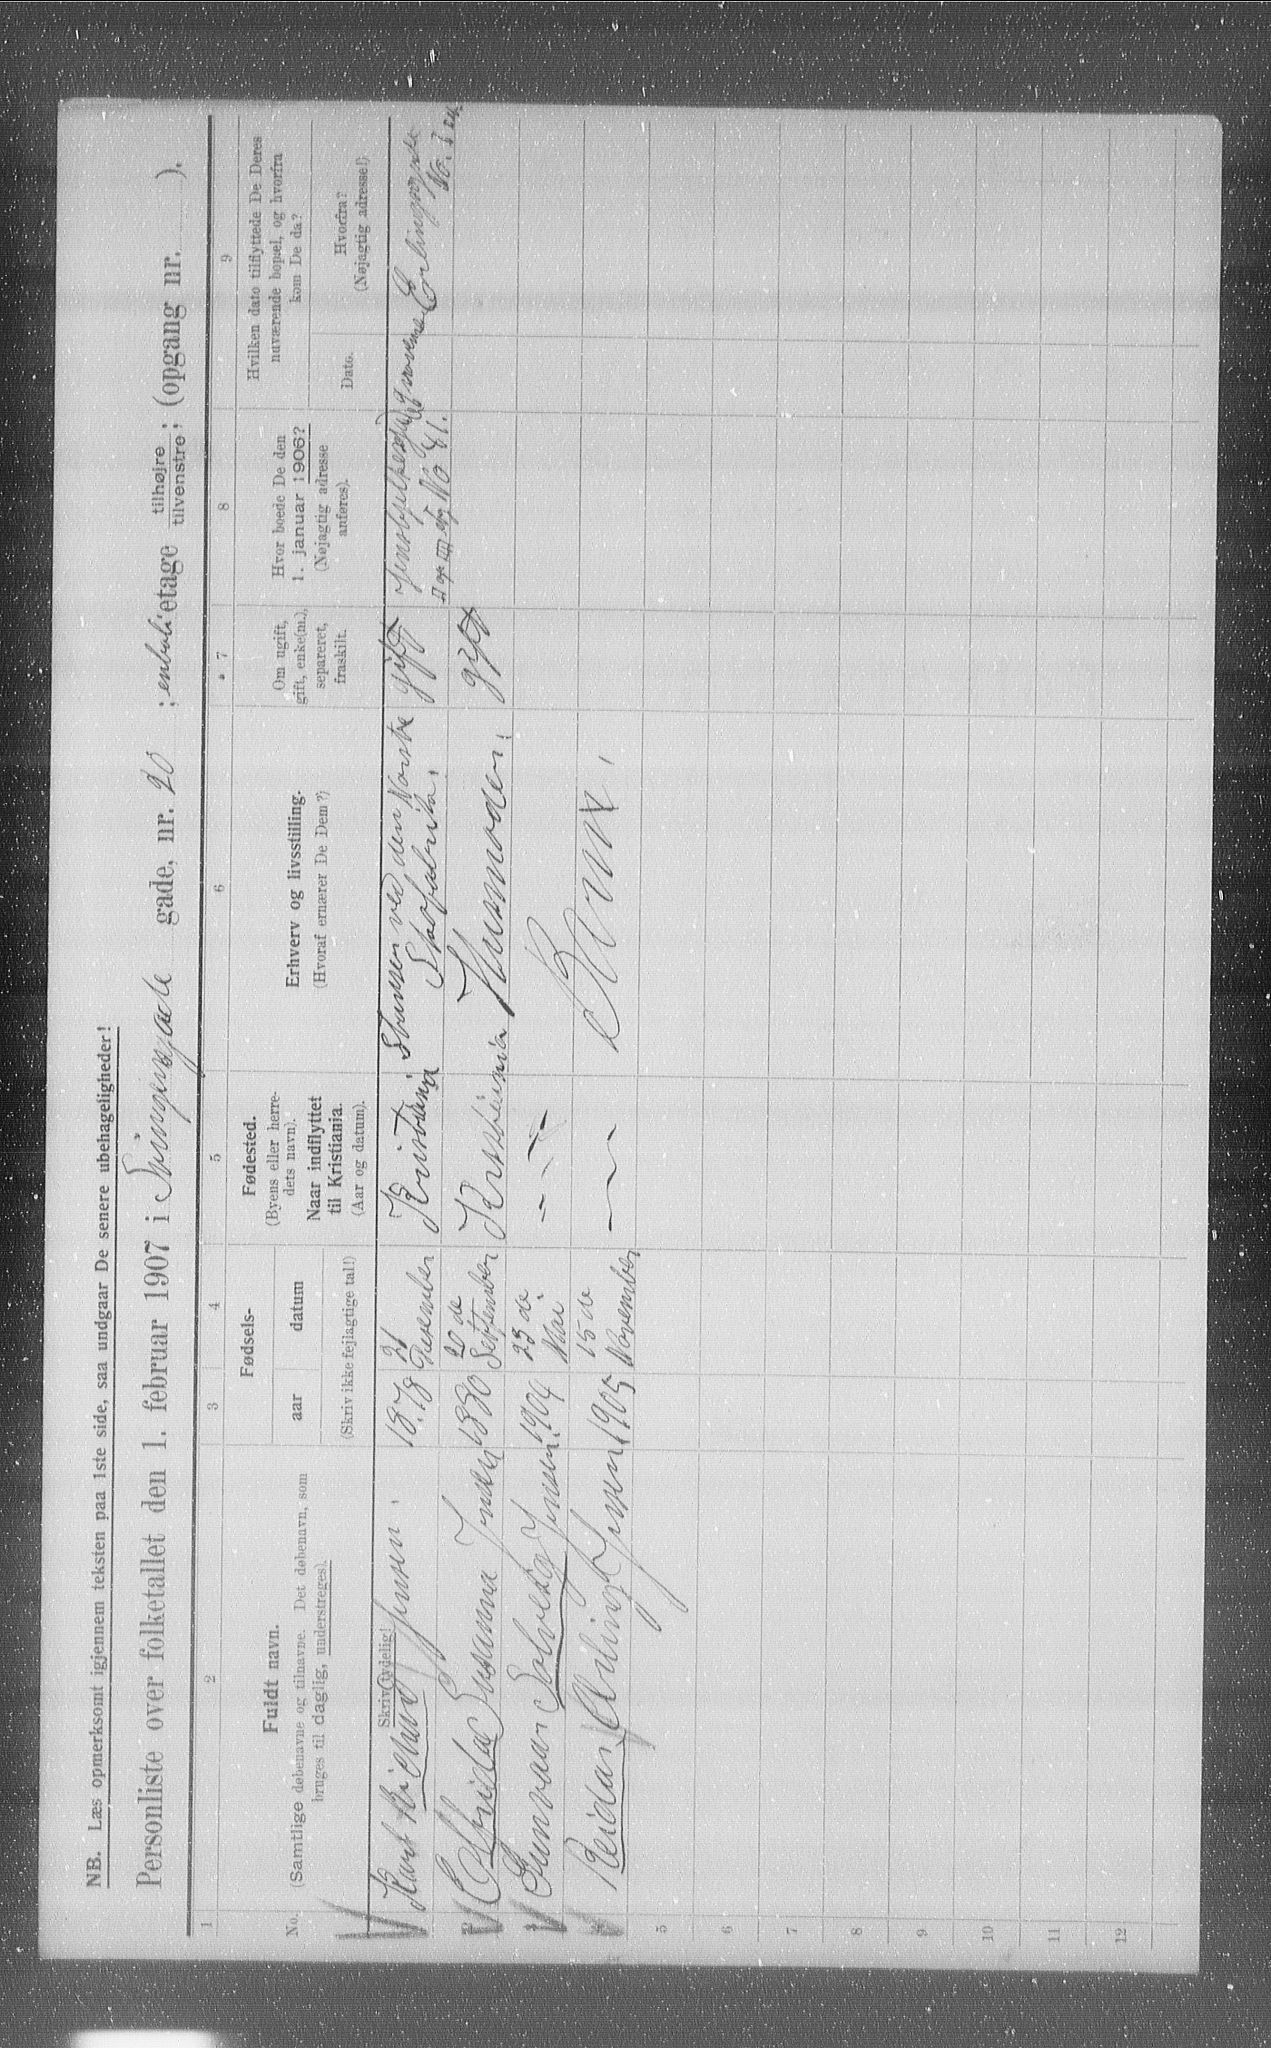 NB. Læs opmerksomt igjennem teksten paa 1ste side, saa undgaar De senere ubehageligheder!
Personliste over folketallet den 1. februar 1907 i gade, nr. 20 ; etage tilhøjre tilvenstre; (opgang nr. ).
1 2 3 4 5 6 7 8 9
No.
Fuldt navn.
(Samtlige døbenavne og tilnavne. Det døbenavn, som
bruges til daglig, understreges).
Skriv tydelig!
Fødsels-
aar datum
(Skriv ikke fejlagtige tal!)
Fødested.
(Byens eller herre-
dets navn).
Naar indflyttet
til Kristiania.
(Aar og datum).
Erhverv og livsstilling.
(Hvoraf ernærer De Dem?)
Om ugift,
gift, enke(m.),
separeret,
fraskilt.
Hvor boede De den
1. januar 1906?
(Nøjagtig adresse
anføres).
Hvilken dato tilflyttede De Deres
nuværende bopæl, og hvorfra
kom De da?
Dato.
Hvorfra?
(Nøjagtig adresse!)
Karl Richard Jensen. 1878 21 December Kristiania ved den Norske gift
No 41.
2 Elfrida Susanna Jensen 1880 20de September Kristiania Husmoder. gift
3 Gunvaar Solveig Jensen. 1904 23de Mai
4 Reidar Erling Jensen 1905 15de November Barn.
5
6
7
8
9
10
11
12